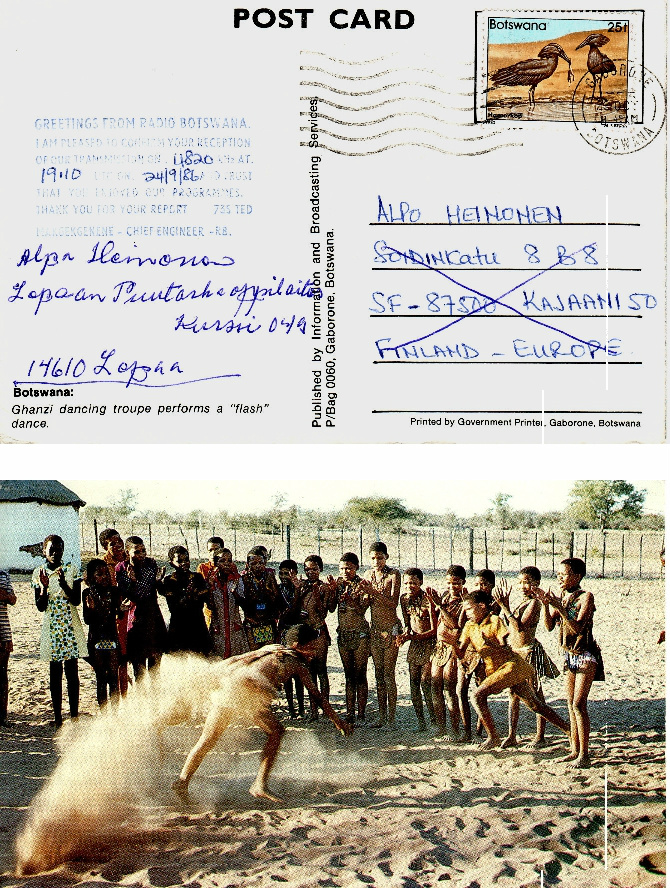 POST CARD
Botswana 25t
BOTSWANA
GREETINGS FROM RADIO BOTSWANA.
I AM PLEASED TO CONFIRM YOUR RECEPTION
OF OUR TRANSMISSION ON 4820 KHZ AT.
19·10 24/9/86 TRUST
THAT YOU ENJOYED OUR PROGRAMMES.
THANK YOU FOR YOUR REPORT 73S TED
- CHIEF ENGINEER -RB.
Alpo Heinonen
Lopaan
Kurssi 04/9
14610 Lopaa
Botswana:
Ghanzi dancing troupe performs a "flash"
dance.
Published by Information and Broadcasting Services,
P/Bag 0060, Gaborone, Botswana.
ALPO HEINONEN
8 B 8
SF-87500 KAJAANI 50
FINLAND - EUROPE
Printed by Government Printer, Gaborone, Botswana